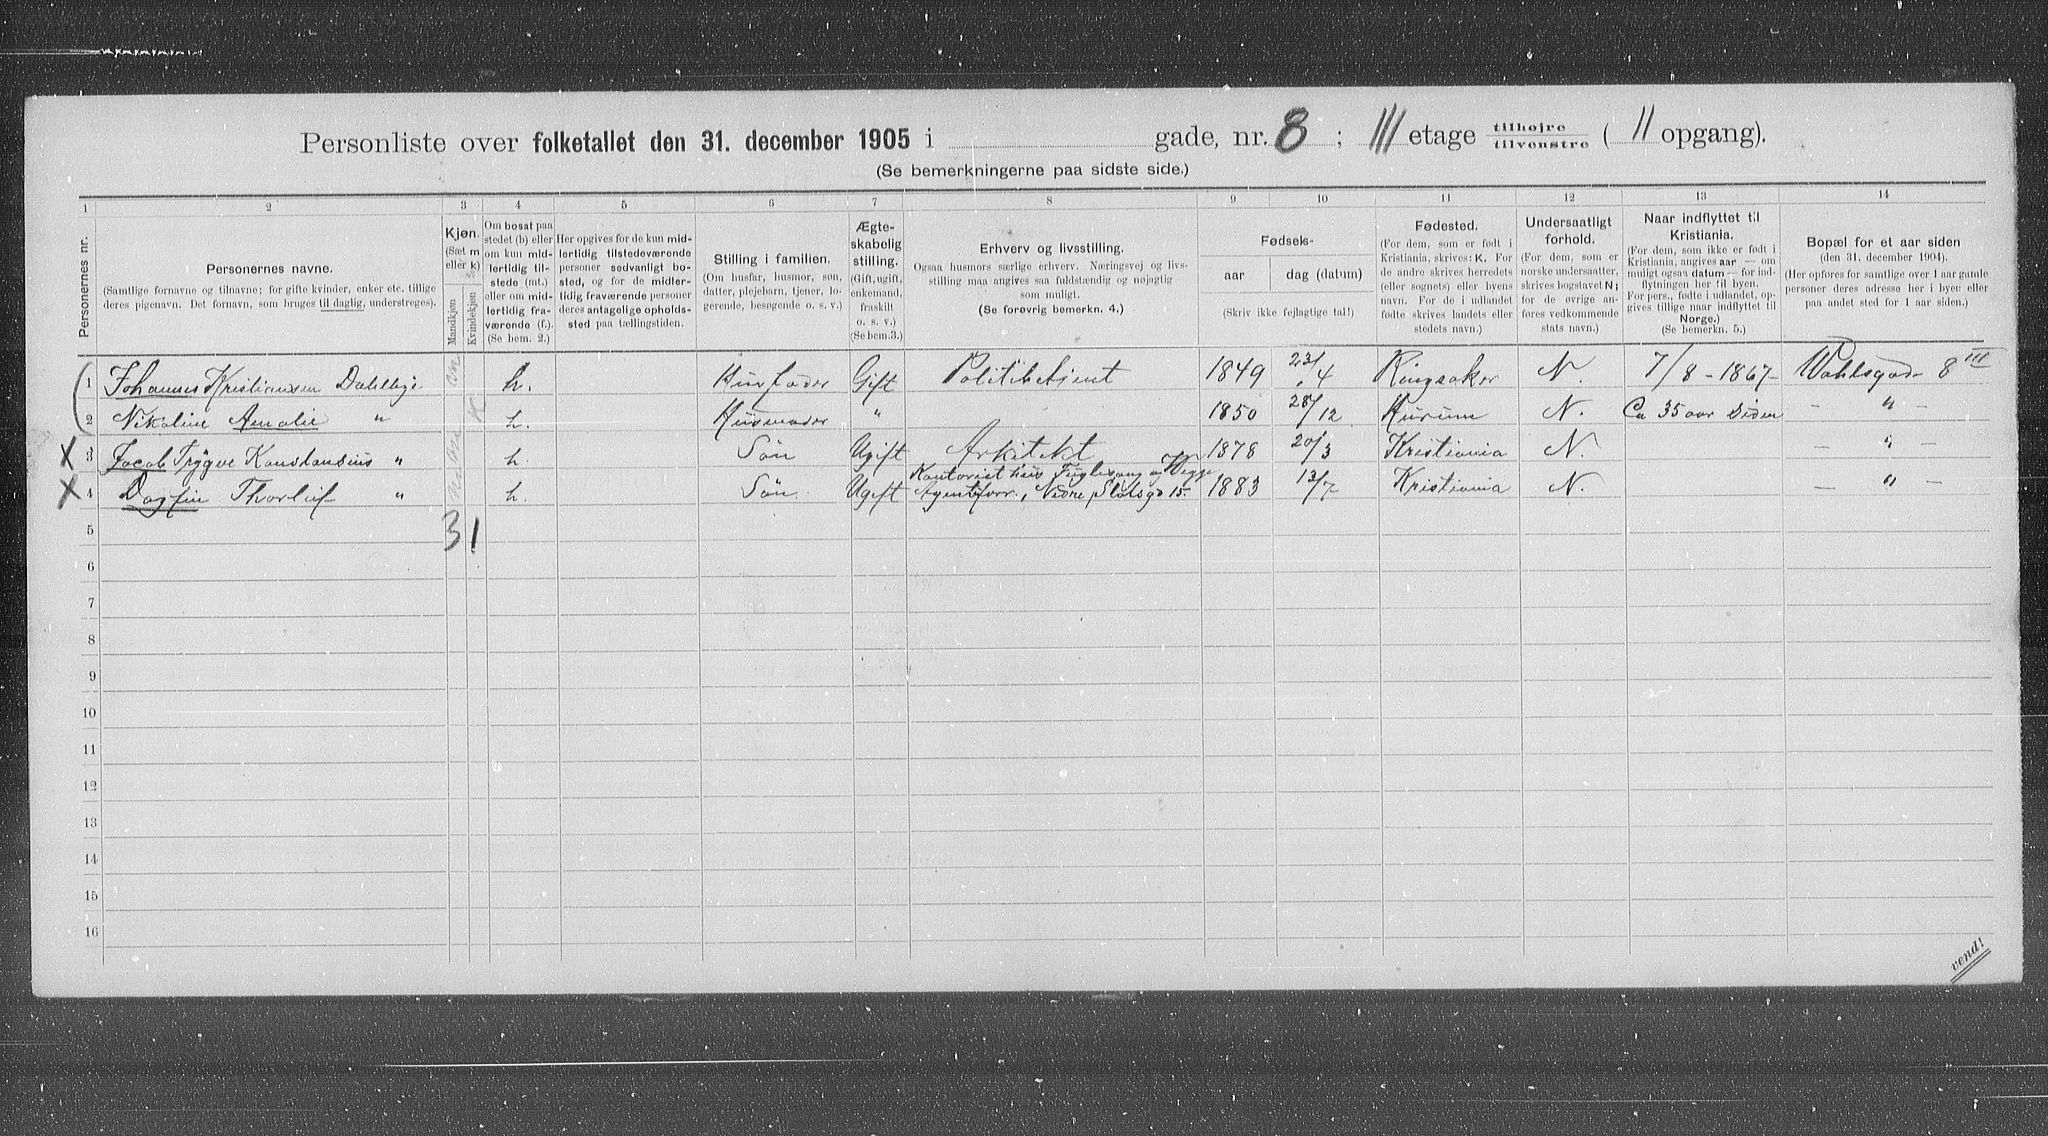 Personliste over folketallet den 31. december 1905 i gade, nr. 8 ; III etage tilhøjre tilvenstre ( II opgang).
(Se bemerkningerne paa sidste side.)
1 2 3 4 5 6 7 8 9 10 11 12 13 14
Personernes nr.
Personernes navne.
(Samtlige fornavne og tilnavne; for gifte kvinder, enker etc. tillige
deres pigenavn. Det fornavn, som bruges til daglig, understreges).
Kjøn.
(Sæt m
eller k)
Mandkjøn
Kvindekjøn
Om bosat paa
stedet (b) eller
om kun mid-
lertidig til-
stede (mt.)
eller om mid-
lertidig fra-
værende (f.).
(Se bem. 2.)
Her opgives for de kun mid-
lertidig tilstedeværende
personer sedvanligt bo-
sted, og for de midler-
tidig fraværende personer
deres antagelige opholds-
sted paa tællingstiden.
Stilling i familien.
(Om husfar, husmor, søn,
datter, plejebarn, tjener, lo-
gerende, besøgende o. s. v.)
Ægte-
skabelig
stilling.
(Gift, ugift,
enkemand,
fraskilt
o. s. v.)
(Se bem.3.)
Erhverv og livsstilling.
Ogsaa husmors særlige erhverv. Næringsvej og livs-
stilling maa angives saa fuldstændig og nøjagtig
som muligt.
(Se forøvrig bemerkn. 4.)
Fødsels-
aar
dag (datum)
(Skriv ikke fejlagtige tal!)
Fødested.
(For dem, som er født i
Kristiania, skrives: K. For
de andre skrives herredets
(eller sognets) eller byens
navn. For de i udlandet
fødte skrives landets eller
stedets navn.)
Undersaatligt
forhold.
(For dem, som er
norske undersaatter,
skrives bogstavet N;
for de øvrige an-
føres vedkommende
stats navn.)
Naar indflyttet til
Kristiania.
(For dem, som ikke er født i
Kristiania, angives aar — om
muligt ogsaa datum — for ind-
flytningen her til byen.
For pers., fødte i udlandet, op-
gives tillige naar indflyttet til
Norge.)
(Se bemerkn. 5.)
Bopæl for et aar siden
(den 31. december 1904).
(Her opføres for samtlige over 1 aar gamle
personer deres adresse her i byen eller
paa andet sted for 1 aar siden.)
1 Johannes Kristiansen m b. Husfader Gift Politibetjent 1849 23/4 Ringsaker N. 7/8 - 1867 8 III
2 Nikoline Amalie " k b. Husmoder " 1850 28/12 Hurum N. Ca 35 aar siden — " —
X 3 Jacob Trygve Konstansius " m b. Søn Ugift Arkitekt 1878 20/3 Kristiania N. — " —
Kontorist hos Fuglesang og
X 4 Dagfin Thorleif " m b. Søn Ugift Agentforr., Nedre Slotsgd 15 1883 13/7 Kristiania N. — " —
3 1
5
6
7
8
9
10
11
12
13
14
15
16
vend!